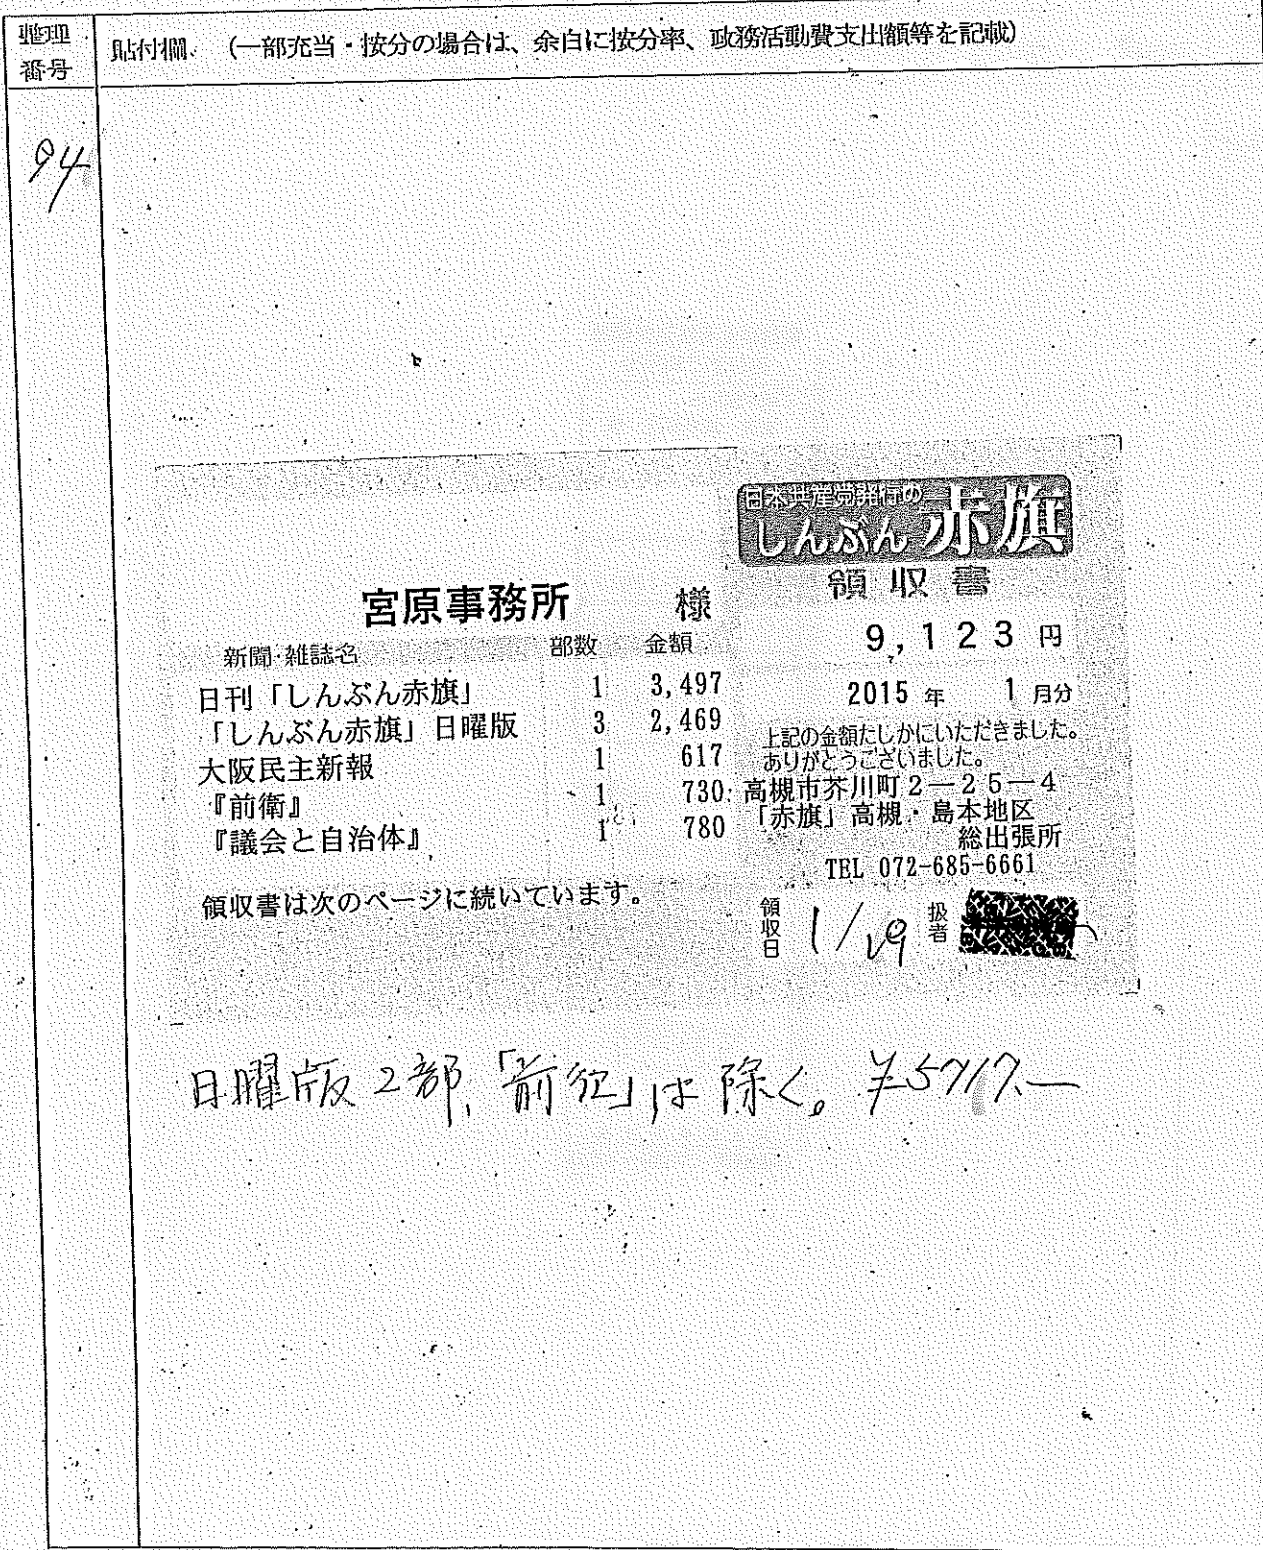 整理
番号
貼付欄 (一部充当・按分の場合は、余白に按分率、政務活動費支出額等を記載)
94
日本共産党発行の
しんぶん赤旗
領収書
宮原事務所 様
9,123円
新聞・雑誌名 部数 金額
日刊「しんぶん赤旗」 1 3,497
「しんぶん赤旗」日曜版 3 2,469
大阪民主新報 1 617
『前衛』 1 730
『議会と自治体』 1 780
領収書は次のページに続いています。
2015年 1月分
上記の金額たしかにいただきました。
ありがとうございました。
高槻市芥川町2―25―4
「赤旗」高槻・島本地区
総出張所
TEL 072-685-6661
領収日 1/29 扱者
日曜版2部、「前衛」は除く。 ¥5717.―